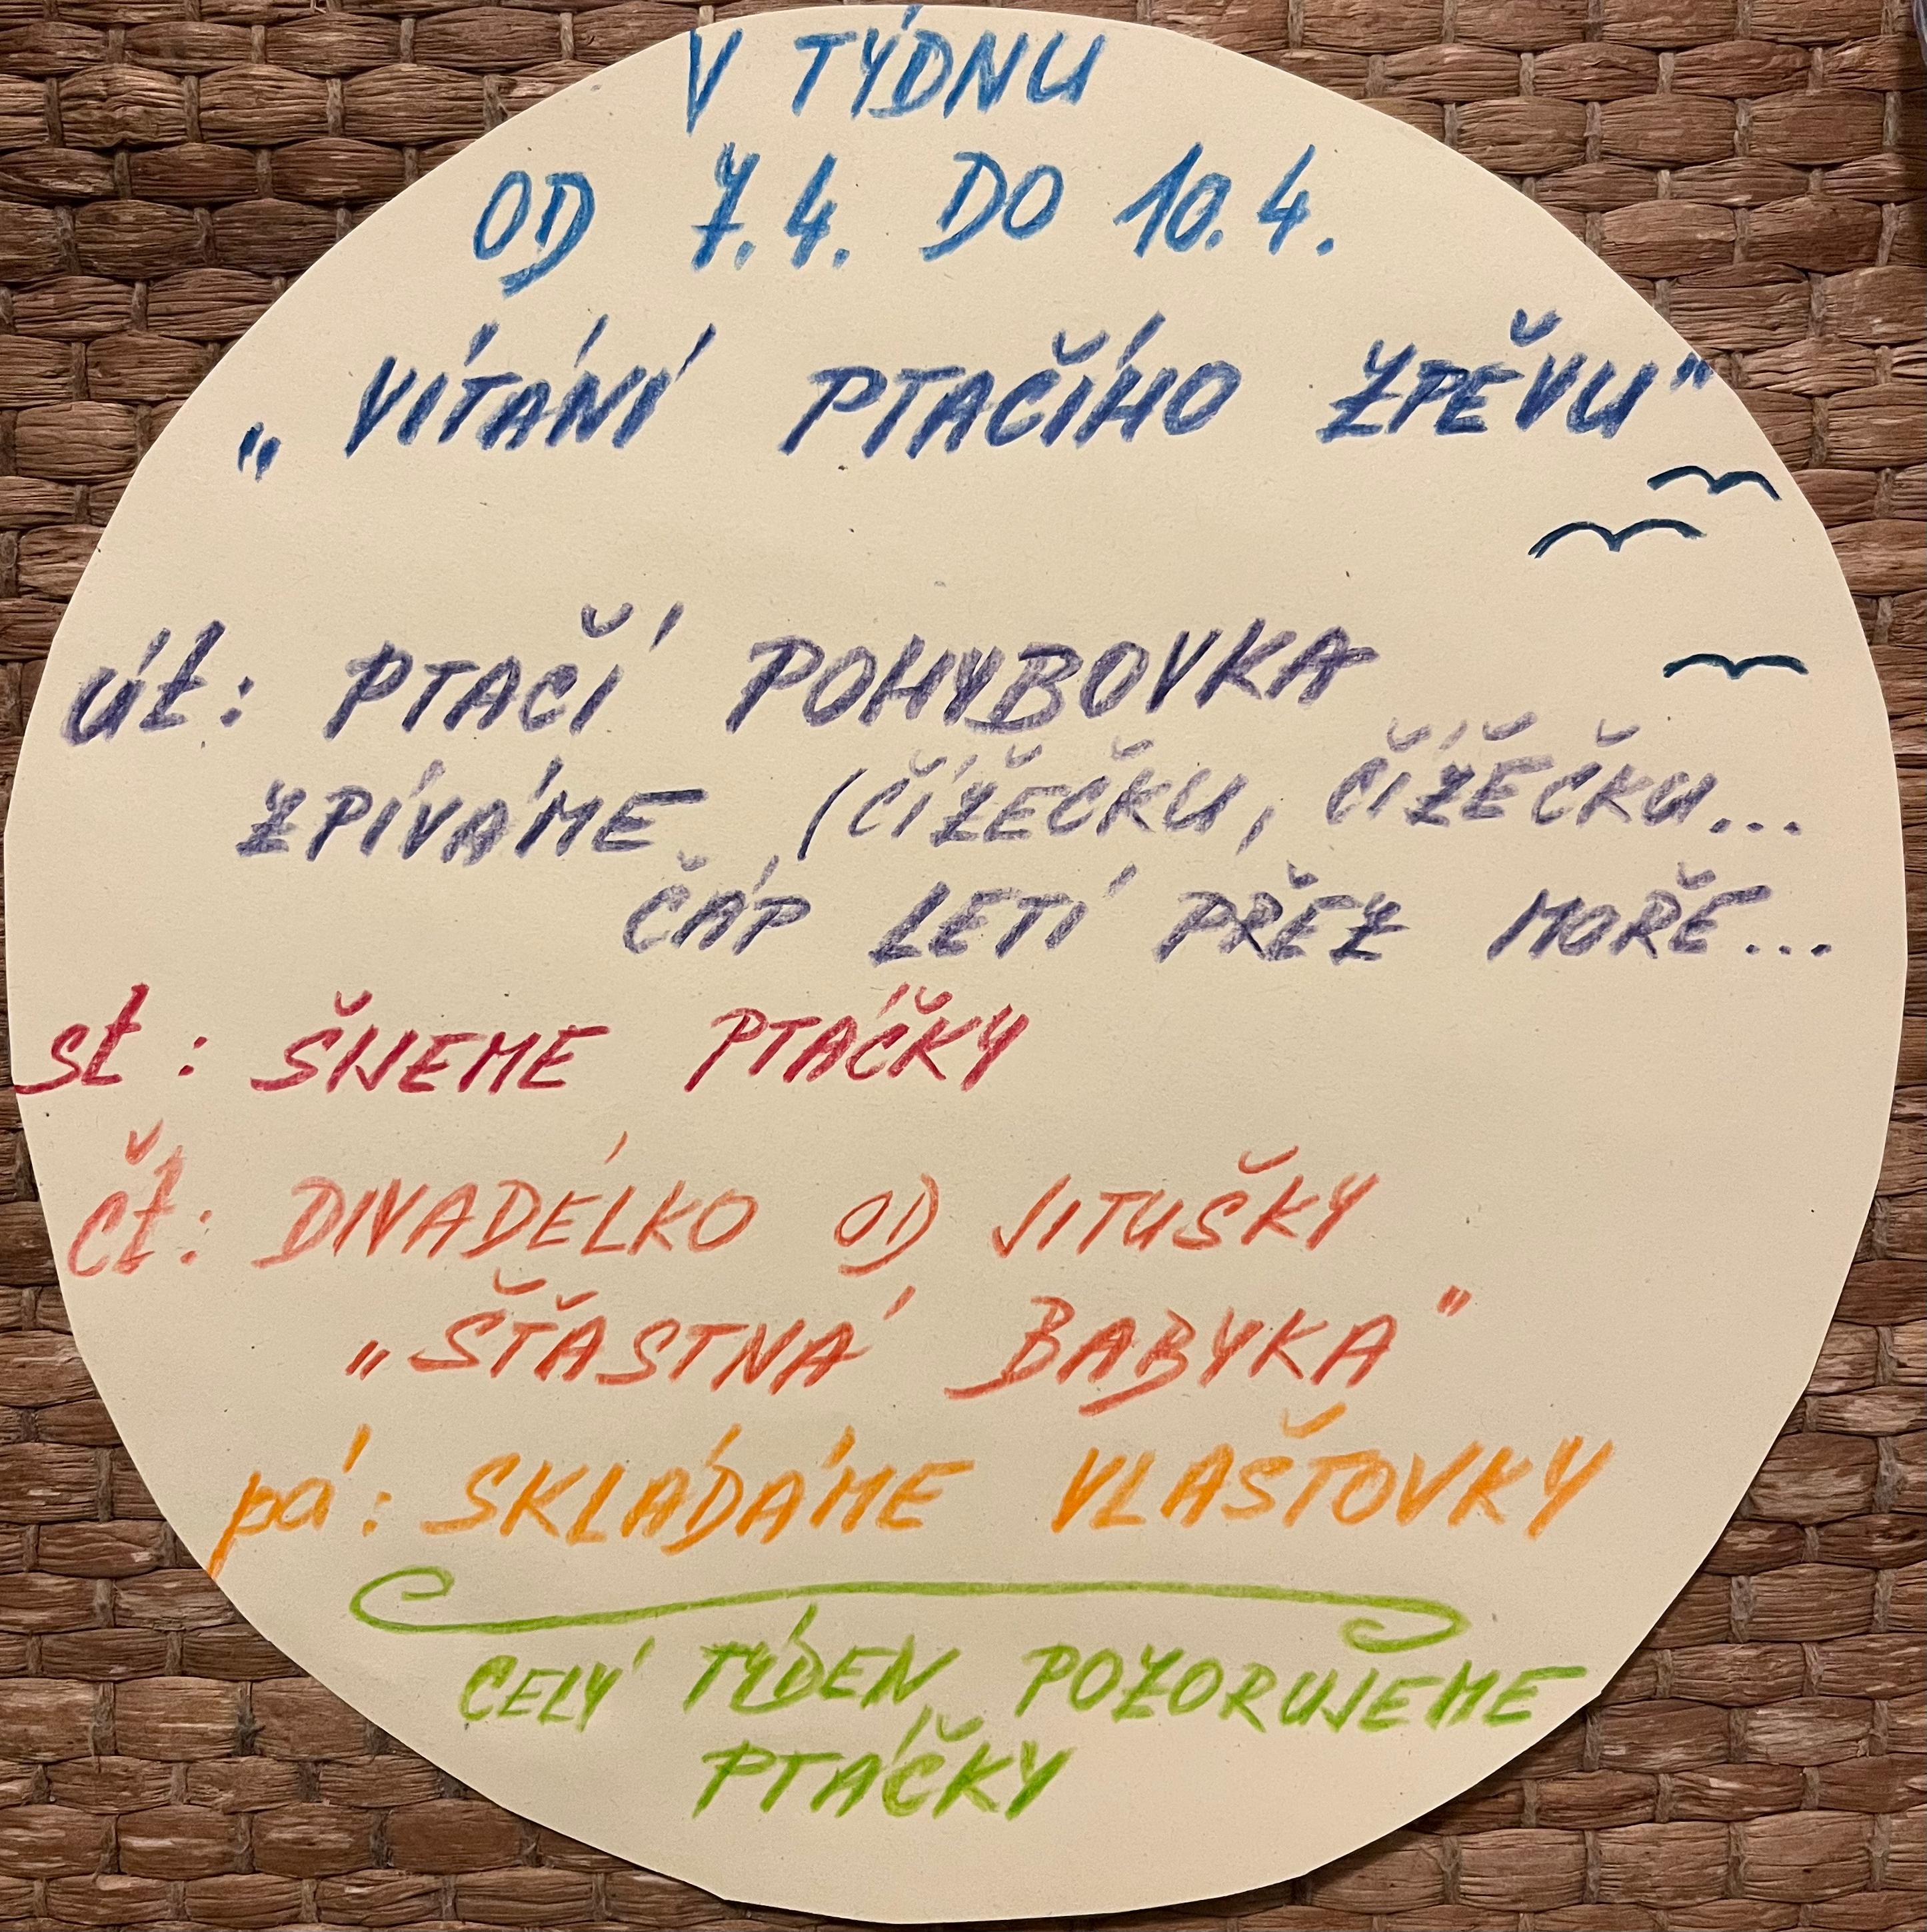 V TÝDNU
OD 7.4. DO 10.4.
„VÍTÁNÍ PTAČÍHO ZPĚVU"
út: PTAČÍ POHYBOVKA
ZPÍVÁME (ČÍŽEČKU, ČÍŽEČKU...
ČÁP LETÍ PŘEZ MOŘE...
st: ŠIJEME PTÁČKY
čt: DIVADÉLKO OD JITUŠKY
„ŠŤASTNÁ BABYKA"
pá: SKLÁDÁME VLAŠŤOVKY
CELÝ TÝDEN POZORUJEME
PTÁČKY